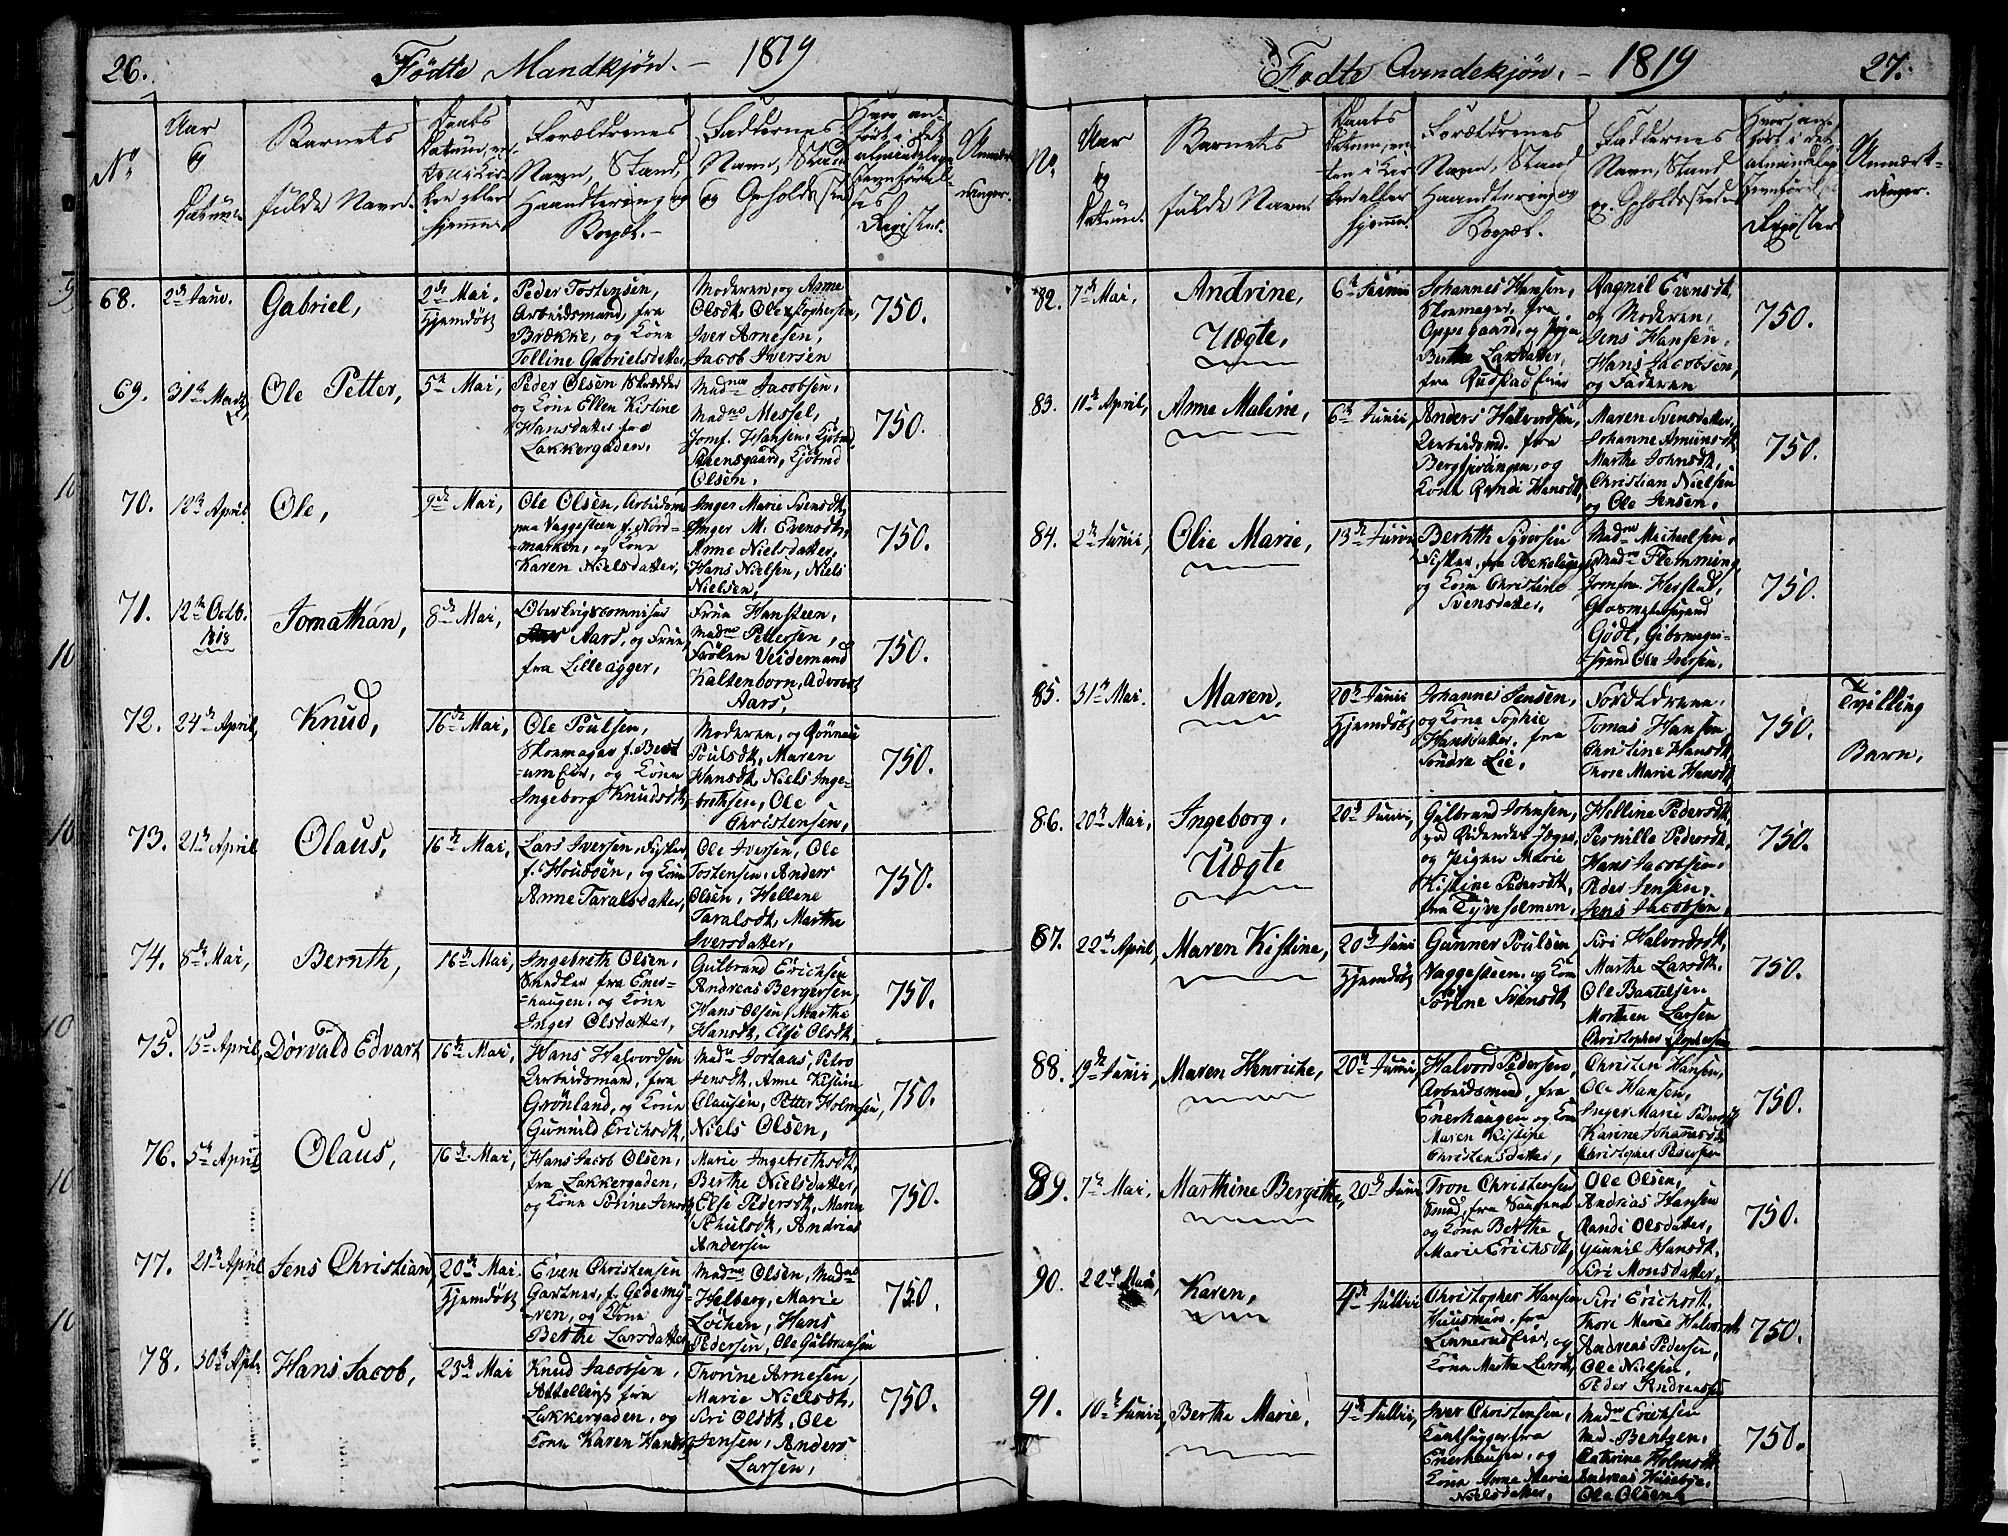 26.
Födte Mandkjön. – 1819
No
Aar
og
Datum.
Barnets
fulde Navn.
Forældrenes
Navn, Stand,
Haandtering og
Bopæl.
Faddernes
Navn, Stand
og Opholdssted
Registret.
68.
2den Janr.
Gabriel,
2den Mai,
Hjemdöbt
Peder Tostensen,
Arbeidsmand, fra
Brække, og Kone
Tolline Gabrielsdatter,
Moderen, og Anne
Olsdt,
Iver Arnesen,
Jacob Iversen
750.
69.
31te
Ole Petter,
5te Mai,
Peder Olsen Skrædder
og Kone Ellen Kistine
Hansdatter fra
Lakkergaden.
Madme Jacobsen,
Madme Messel,
Jomf. Hansen, Kjöbmd
Steensgaard, Kjöbmd
Olsen,
750.
70.
April
Ole,
9de Mai,
Ole Olsen, Arbeidsm
paa Vaggesteen f. Nord-
-marken, og Kone
Karen Nielsdatter,
Inger Marie Svensdt,
Inger M. Evensdt,
Anne Nielsdatter,
Hans Nielsen, Niels
Nielsen,
750.
71.
12te Octb.
1818
Jomathan,
8de Mai,
Aars, og Frue,
fra Lille
Frue Hansteen,
Madme Pettersen,
Frölen Veidemand
Kaltenborn, Advocat
Aars,
750.
72.
24de April,
Knud,
16de Mai,
Ole Poulsen,
Skomager
og Kone
Ingeborg Knudsdt,
Moderen, og Rönnau
Poulsdt, Maren
Hansdt, Niels Inge-
brethsen, Ole
Christensen,
750.
73.
21de April
Olaus,
16de Mai,
Lars Iversen, Fisker
f. Hovedöen, og Kone
Anne Taralsdatter,
Ole Iversen, Ole
Tostensen, Anders
Olsen, Hellene
Taralsdt, Marthe
Iversdatter,
750.
74.
8de Mai,
Bernth,
16de Mai,
Ingebreth Olsen,
Snedker fra Ener-
-haugen, og Kone
Inger Olsdatter,
Gulbrand Erichsen
Andreas Bergersen,
Hans Olsen, Marthe
Hansdt, Else Olsdt,
750.
75.
15de April,
Dorvald Edvart
16de Mai,
Hans Halvordsen
Arbeidsmand, fra
Grönland, og Kone
Gunnild Erichsdt,
Jensdt, Anne Kistine
Clausen, Petter Holmsen,
Niels Olsen,
750.
76.
5te April
Olaus,
16de Mai,
Hans Jacob Olsen,
fra Lakkergaden,
og Kone Sörine Jensdt
Marie Ingebrethsdt,
Berthe Nielsdatter,
Else Pedersdt, Maren
Andreas
Andersen
750.
77.
21de April
Jens Christian,
20de Mai
Hjemdöbt
Even Christensen
Gartner, f. Gedemy-
-ren, og Kone
Berthe Larsdatter
Madme Olsen, Madme
Helberg, Marie
Lochen, Hans
Pedersen, Ole Gulbransen
750.
78.
30te Apl.
Hans Jacob,
23de Mai
Knud Jacobsen,
fra
Lakkergaden, og
Kone Karen Hansdt
Thorine Arnesen,
Marie Nielsdt,
Siri Olsdt, Ole
Jensen, Anders
Larsen,
750.
Födte Qvindekjön. – 1819
27.
No.
Aar
og
Datum.
Barnets
fulde Navn
Forældrenes
Navn, Stand
Haandtering og
Bopæl.
Faddernes
Navn, Stand
og Opholdssted
Register
Anmærk-
ninger.
82.
7de Mai,
Andrine,
Uægte,
6te Junii
Johannes Hansen,
Skomager, fra
Oppegaard, og Pige
Berthe Larsdatter,
fra Rudstad Eier
Ragnil Evensdt,
og Moderen,
Jens Hansen,
Hans Jacobsen,
og Faderen
750.
83.
11te April,
Anne Maline,
6te Junii,
Anders Halvordsen,
Arbeidsmd. fra
og
Kone Randi Hansdt,
Maren Svensdatter,
Johanne Amundsdt
Marthe Johnsdt,
Christian Nielsen
og Ole Jensen,
750.
84.
2den Junii,
Olie Marie,
13de Junii
Bernth Syversen
Fisker, fra
og Kone Christine
Svensdatter,
Madme Michaelsen,
Madme Flemming,
Jomfru Herstad,
Glasmestersvend
Gödt, Gibsmager-
-svend Ole Iversen,
750.
85.
31te Mai.
Maren,
20de Junii
Hjemdöbt
Johannes Jensen,
og Kone Sophie
Hansdatter, fra
Söndre Lie,
Forældrene,
Tomas Hansen
Christine Hansdt,
Thore Marie Hansdt,
750.
Tvilling
Barn,
86.
20de Mai,
Ingeborg,
Uægte
20de Junii,
Gulbrand Johnsen,
og Pigen Marie
Kistine Pedersdt,
fra Tyveholmen,
Helline Pedersdt,
Pernille Pedersdt,
Hans Jacobsen,
Peder Jensen,
Jens Jacobsen,
750.
87.
22de April,
Maren Kistine,
20de Junii
Hjemdöbt
Gunner Poulsen
Vaggesteen, og Kone
Sörine Svensdt
Siri Halvordsdt,
Marthe Larsdt,
Ole Bartelsen
Morthen Larsen
750.
88.
19de Junii,
Maren Henriche,
20de Junii,
Halvord Pedersen,
Arbeidsmand, fra
Enerhaugen og Kone
Maren Kistine
Christensdatter,
Christen Hansen,
Ole Hansen,
Inger Marie Pedersdt
Karine Johannesdt
Christopher Pedersen
750.
89.
7de Mai,
Marthine Bergithe,
20de Junii
Tron Christensen
Smed, fra Saugene
og Kone Berthe
Marie Erichsdt,
Ole Olsen,
Andreas Hansen
Randi Olsdatter,
Gunnil Hansdt,
Siri Monsdatter,
750.
90.
22de Mai,
Karen,
4de Jullii
Christopher Hansen
Huusmand, fra
Linnerud Eier, og
Kone Marthe Larsdt,
Siri Erichsdt,
Thore Marie Halvorsdt
Andreas Pedersen,
Ole Nielsen,
Peder Andreassen
750.
91.
10de Junii,
Berthe Marie,
4de Jullii,
Iver Christensen,
fra
Enerhaugen, og
Kone Anne Marie
Nielsdatter,
Madme Erichsen
Mad. Bentzen,
Cathrine Holmsdt
Andreas Huseby,
Ole Olsen,
750.